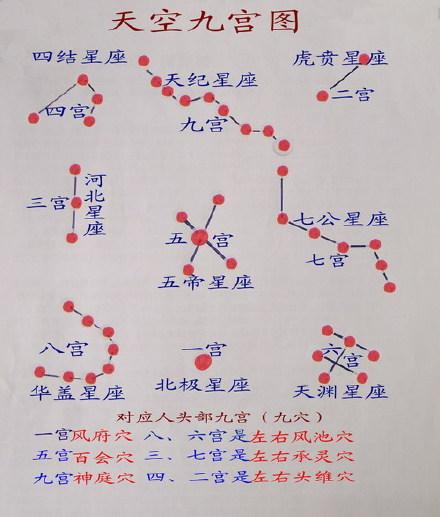 天空九宫图
四结星座
四宫
天纪星座
九宫
虎贲星座
二宫
三宫
河北星座
五宫
五帝星座
七公星座
七宫
八宫
华盖星座
一宫
北极星座
六宫
天渊星座
对应人头部九宫（九穴）
一宫风府穴 八、六宫是左右风池穴
五宫百会穴 三、七宫是左右承灵穴
九宫神庭穴 四、二宫是左右头维穴